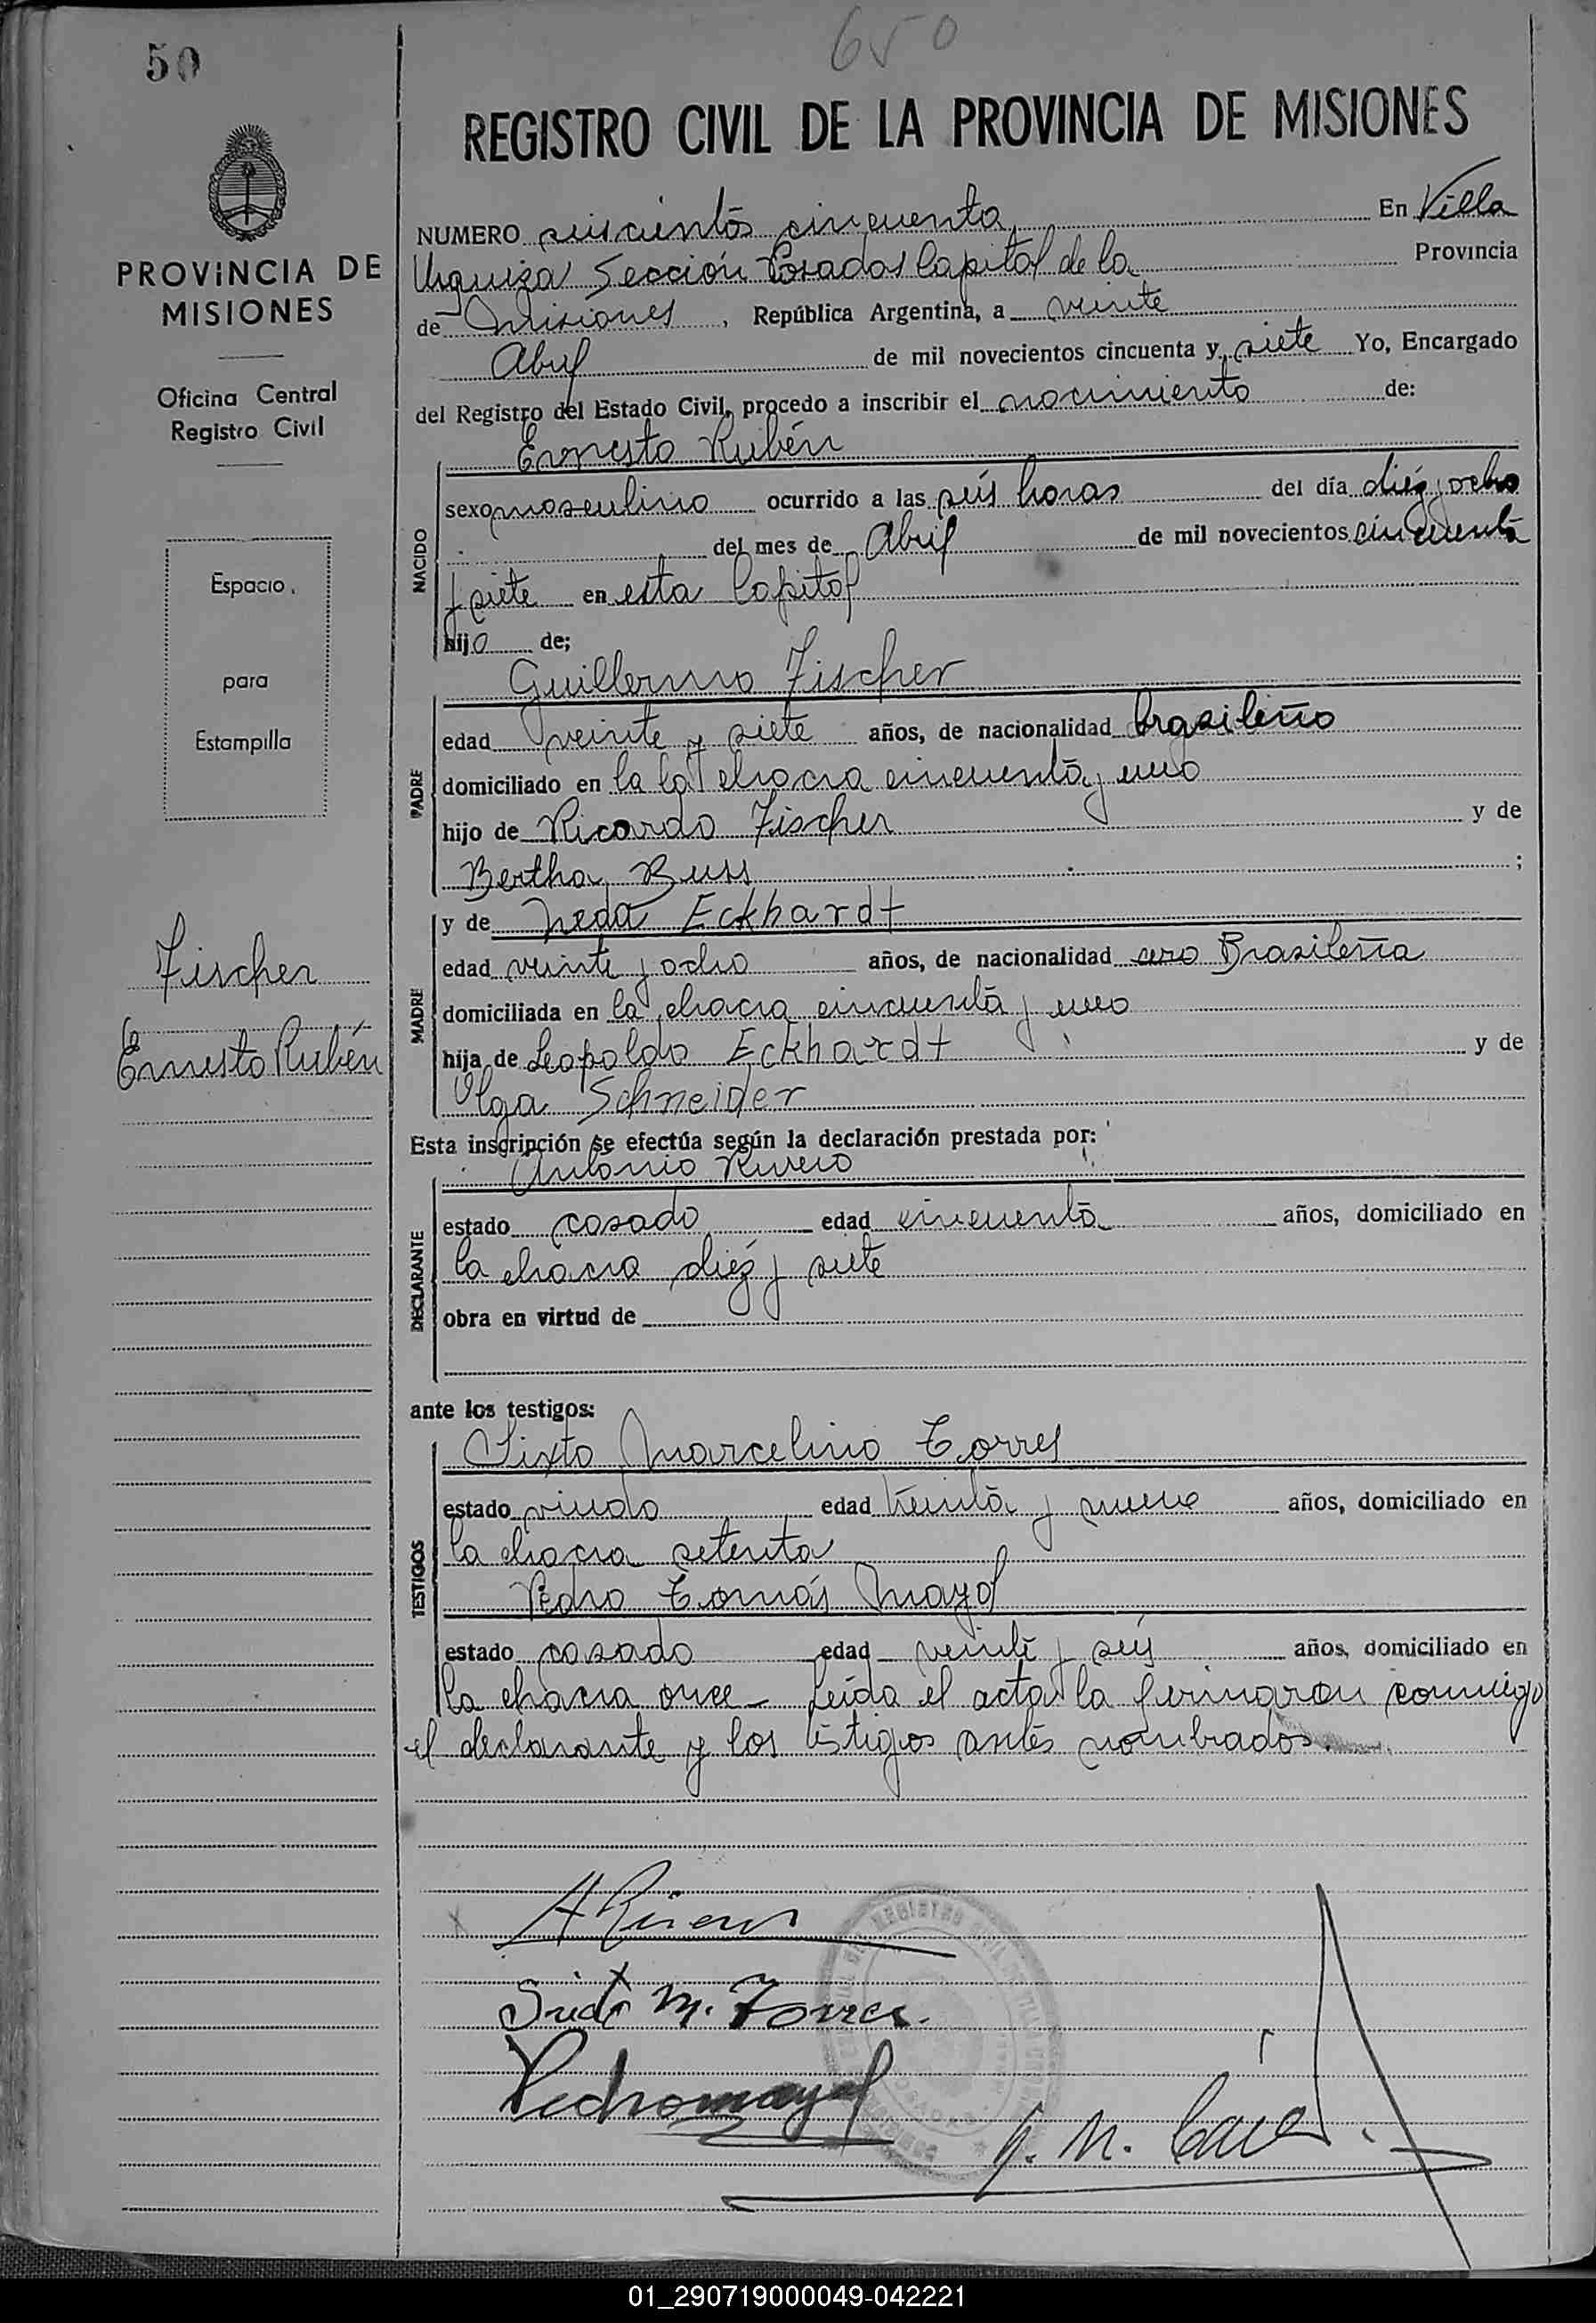 50
650
REGISTRO CIVIL DE LA PROVINCIA DE MISIONES
PROVINCIA DE
MISIONES
Oficina Central
Registro Civil
Espacio
para
Estampilla
Fischer
Ernesto Rubén
NUMERO seiscientos cincuenta En Villa
Urquiza Sección Posadas Capital de la Provincia
de Misiones, República Argentina, a veinte
Abril de mil novecientos cincuenta y siete Yo, Encargado
del Registro del Estado Civil, procedo a inscribir el nacimiento de:
Ernesto Rubén
NACIDO
sexo masculino ocurrido a las seis horas del día diez y ocho
del mes de Abril de mil novecientos cincuenta
y siete en esta Capital
hijo de;
Guillermo Fischer
PADRE
edad veinte y siete años, de nacionalidad brasileño
domiciliado en la la chacra cincuenta y uno
hijo de Ricardo Fischer y de
Bertha Buss ;
MADRE
y de Neda Eckhardt
edad veinte y ocho años, de nacionalidad Brasileña
domiciliada en la chacra cincuenta y uno
hija de Leopoldo Eckhardt y de
Olga Schneider
Esta inscripción se efectúa según la declaración prestada por:
Antonio Rivero
DECLARANTE
estado casado edad cincuenta años, domiciliado en
la chacra diez y siete
obra en virtud de
ante los testigos:
Sixto Marcelino Torres
TESTIGOS
estado viudo edad treinta y nueve años, domiciliado en
la chacra setenta
Pedro Tomás Mayol
estado casado edad veinte y seis años, domiciliado en
la chacra once - Leída el acta la firmaron conmigo
el declarante y los testigos antes nombrados.
Sixto M. Torres.
Pedro Mayol
01_290719000049-042221